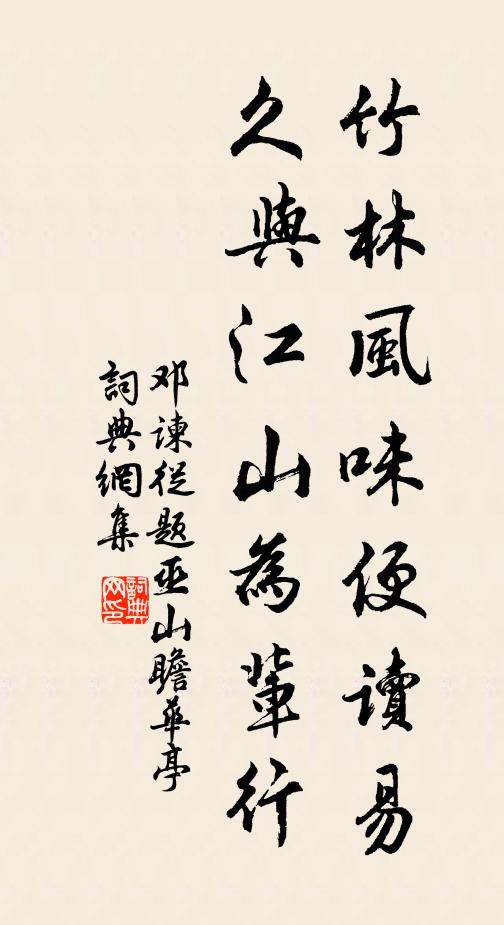 竹林風味便讀易
久與江山為輩行
邓諫從題巫山瞻華亭
詞典網集
詞典
网印